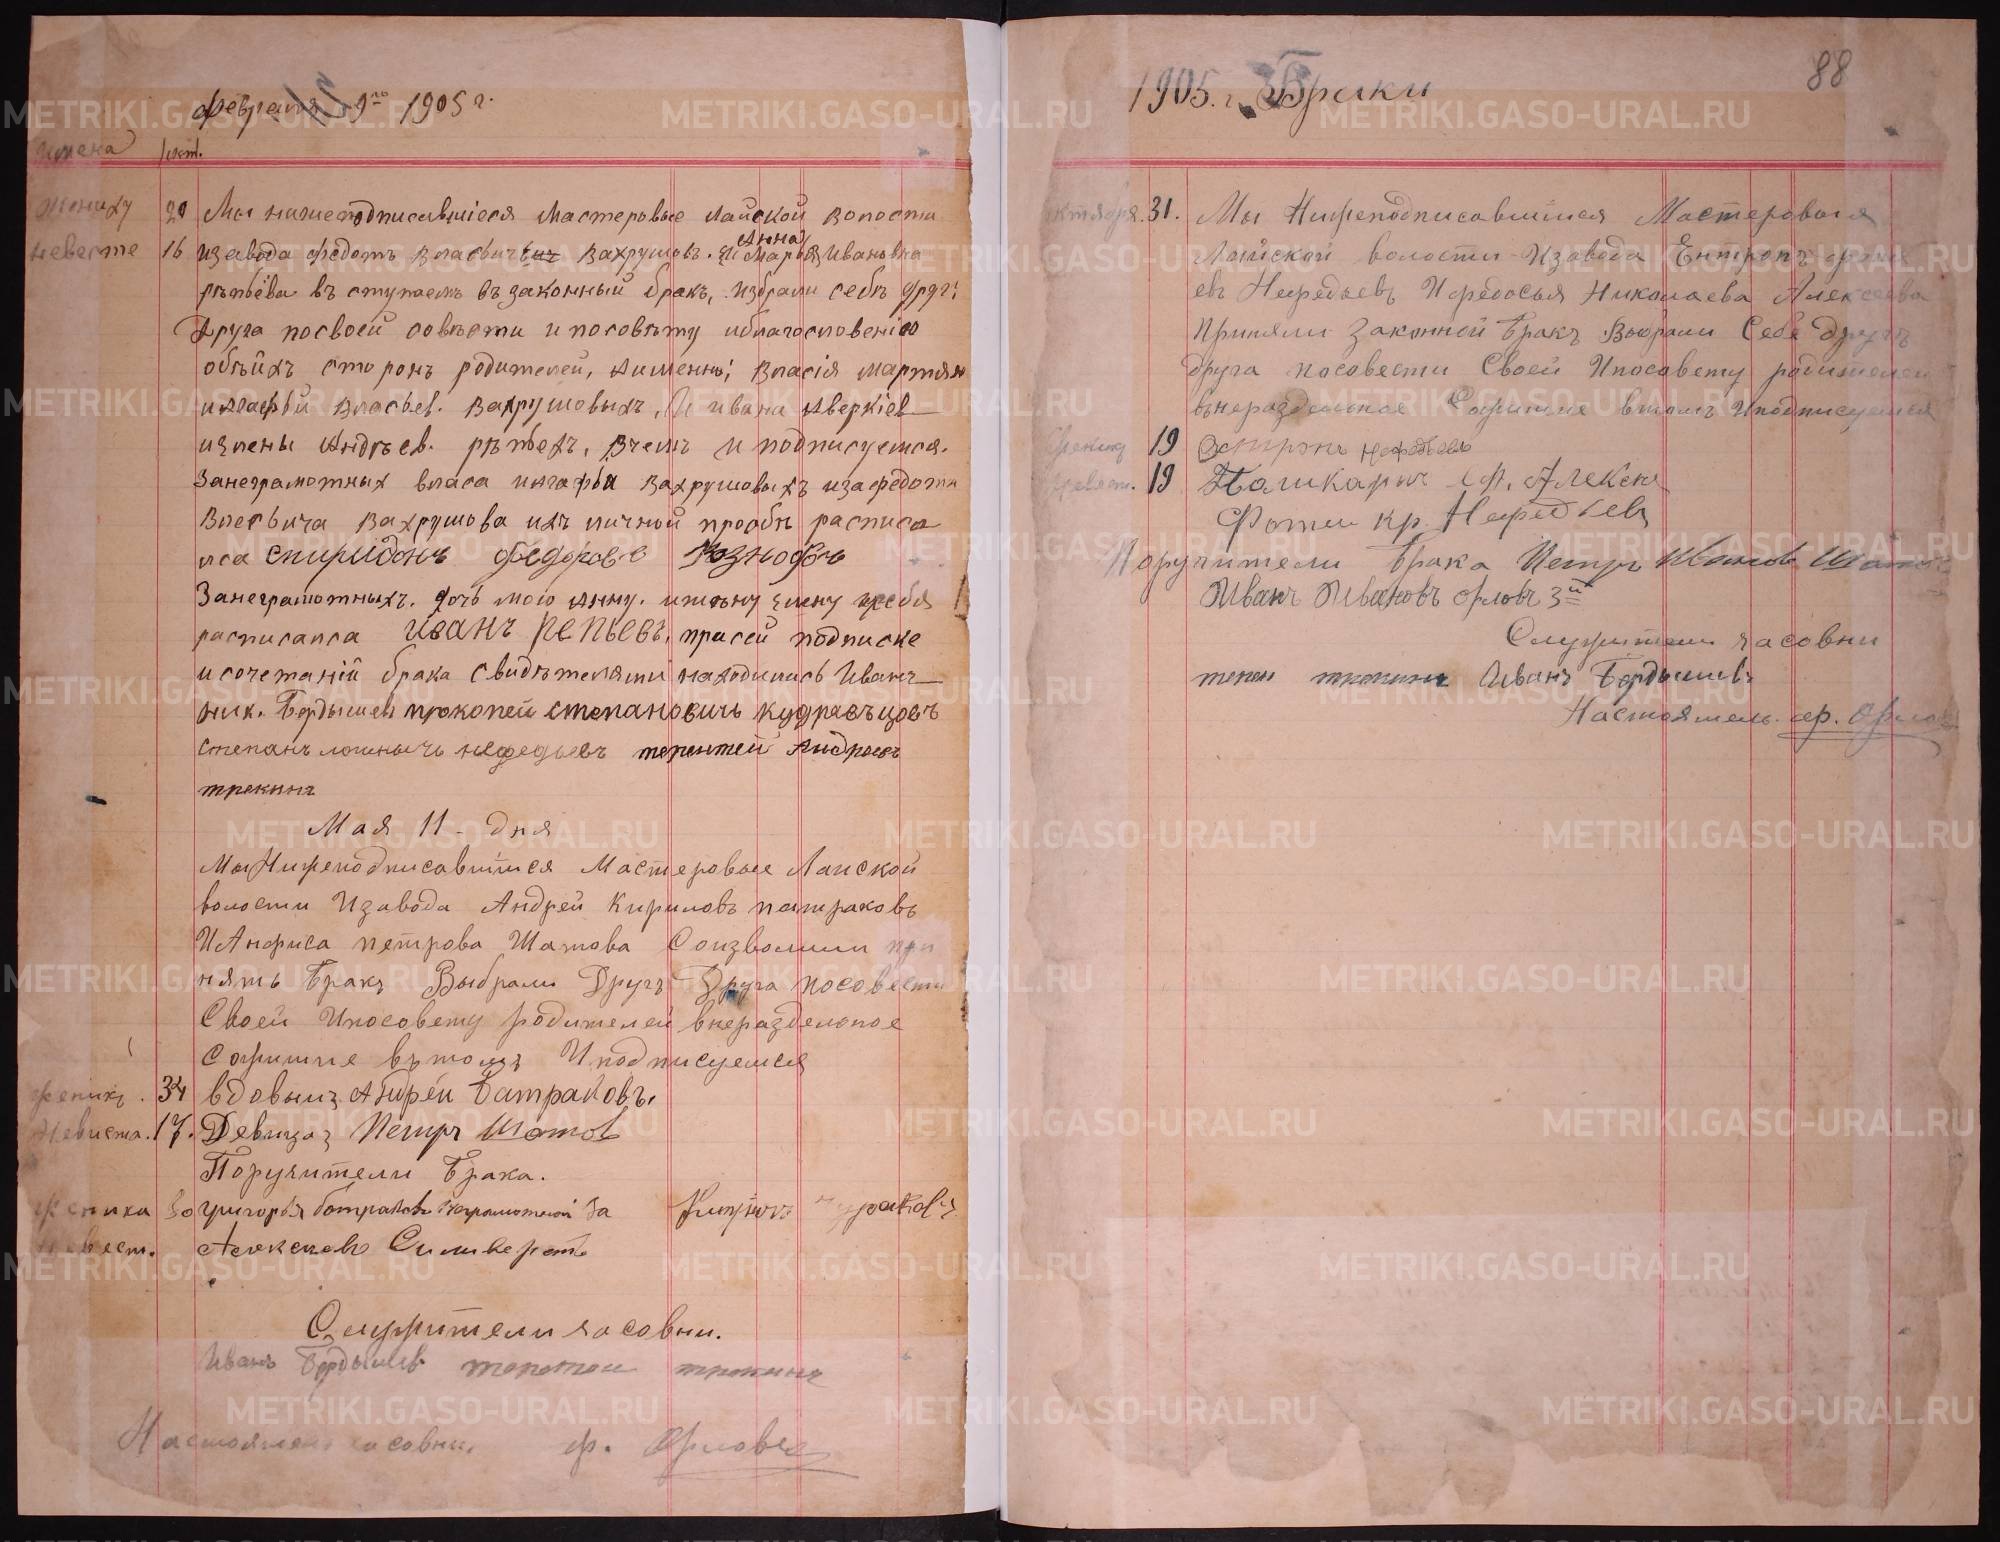 Февраля 9го 1905 г.
имена лѣт.
жениху 20 Мы нижеподписавшіеся Мастеровые Лайской волости
невесте 16 изавода Федотъ Власьичъ Вахрушовъ. и Марья Анна Ивановна
рѣпьева въ ступаемъ въ законный бракъ, избрали себѣ другъ
друга посвоей совѣсти и посовѣту иблагословенію
обѣйхъ сторонъ родителей, аименно; Власія мартьян
иагафьи Власьев. Вахрушовыхъ, И ивана Аверкіев
иелены Андрѣев. рѣпьевхъ, Вчемъ и подписуемся.
Занеграмотных власа иагафьи Вахрушовыхъ изафедота
Власьича Вахрушова ихъ личной прозбѣ расписа
лса спиридонъ федорове
Занеграмотныхъ. дочь мою анну. ижену елену исебя
расписалса иванъ репьевъ, присей подписке
исочетаній брака свидѣтелями находились Иванъ
ник. Бердышев прокопей степановичь кудрявъцовъ
степанъ нефедьевъ терентей Андреевъ
трекинъ
Мая 11 - дня
Мы Нижеподписавшіися Мастеровые Лайской
волости Изавода Андрей Кириловъ патраковъ
ИАнфиса петрова Шатова Соизволили при
нять Бракъ Выбрали Другъ Друга посовести
Своей Ипосовету родителей внераздельное
Сожитие вътомъ Иподписуемся
жених. 34 вдовыиъ Андрей Батраковъ.
Невиста. 17. Девица Петръ Шатов
Поручители Брака.
жениха За григорья батракова неграмотной за
невест. Алексеевъ Силиверстъ
Служители часовни.
Иванъ Бердышев терентеи трекинъ
Настоятель часовни. ф. Орловъ
88
1905. г. Браки
октября. 31. Мы Нижеподписавшіися Мастеровыя
Лайской волости Изавода Ентропъ
евъ Нефедьевъ Ифедосья Николаева Алексеева
Приняли Законной Бракъ Выбрали Себе другъ
друга посовести Своей Ипосовету родителей
внераздельное Сожитие втомъ Иподписуемся
жених 19 Ентропъ Нефедьевъ
невест. 19 Поликарпъ Алексеев
Фотей кр. Нефедьев
Поручители Брака Петръ Иванов Шатов
Иванъ Ивановъ орловъ 3й
Служители часовни
терен трекинъ Иванъ Бердышевъ
Настоятель. ф. Орлов
METRIKI.GASO-URAL.RU